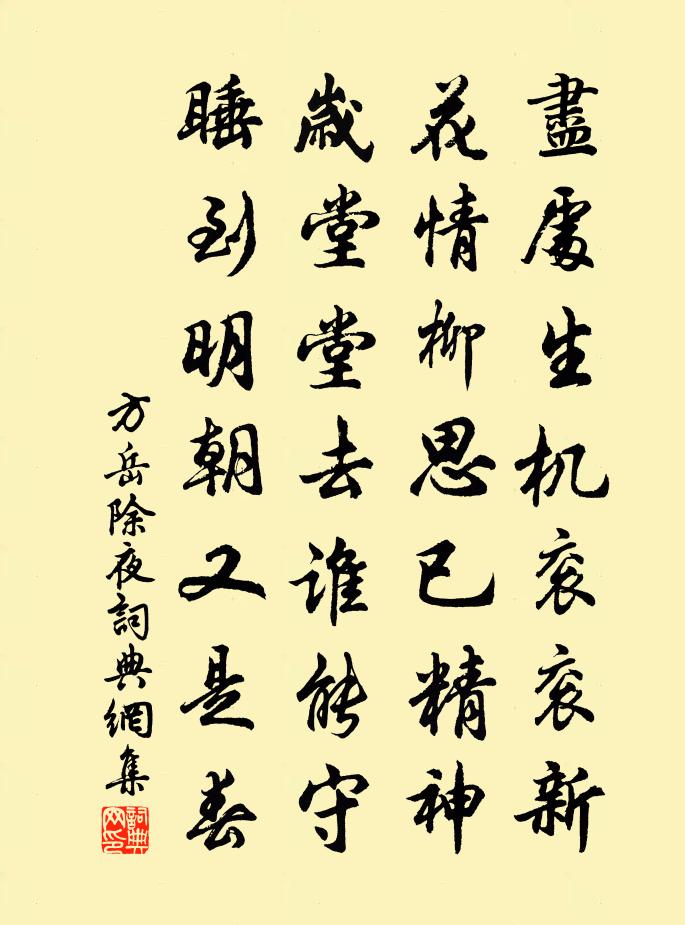 盡處生机衮衮新
花情柳思已精神
歲堂堂去谁能守
睡到明朝又是春
方岳除夜詞典網集
詞典
网印